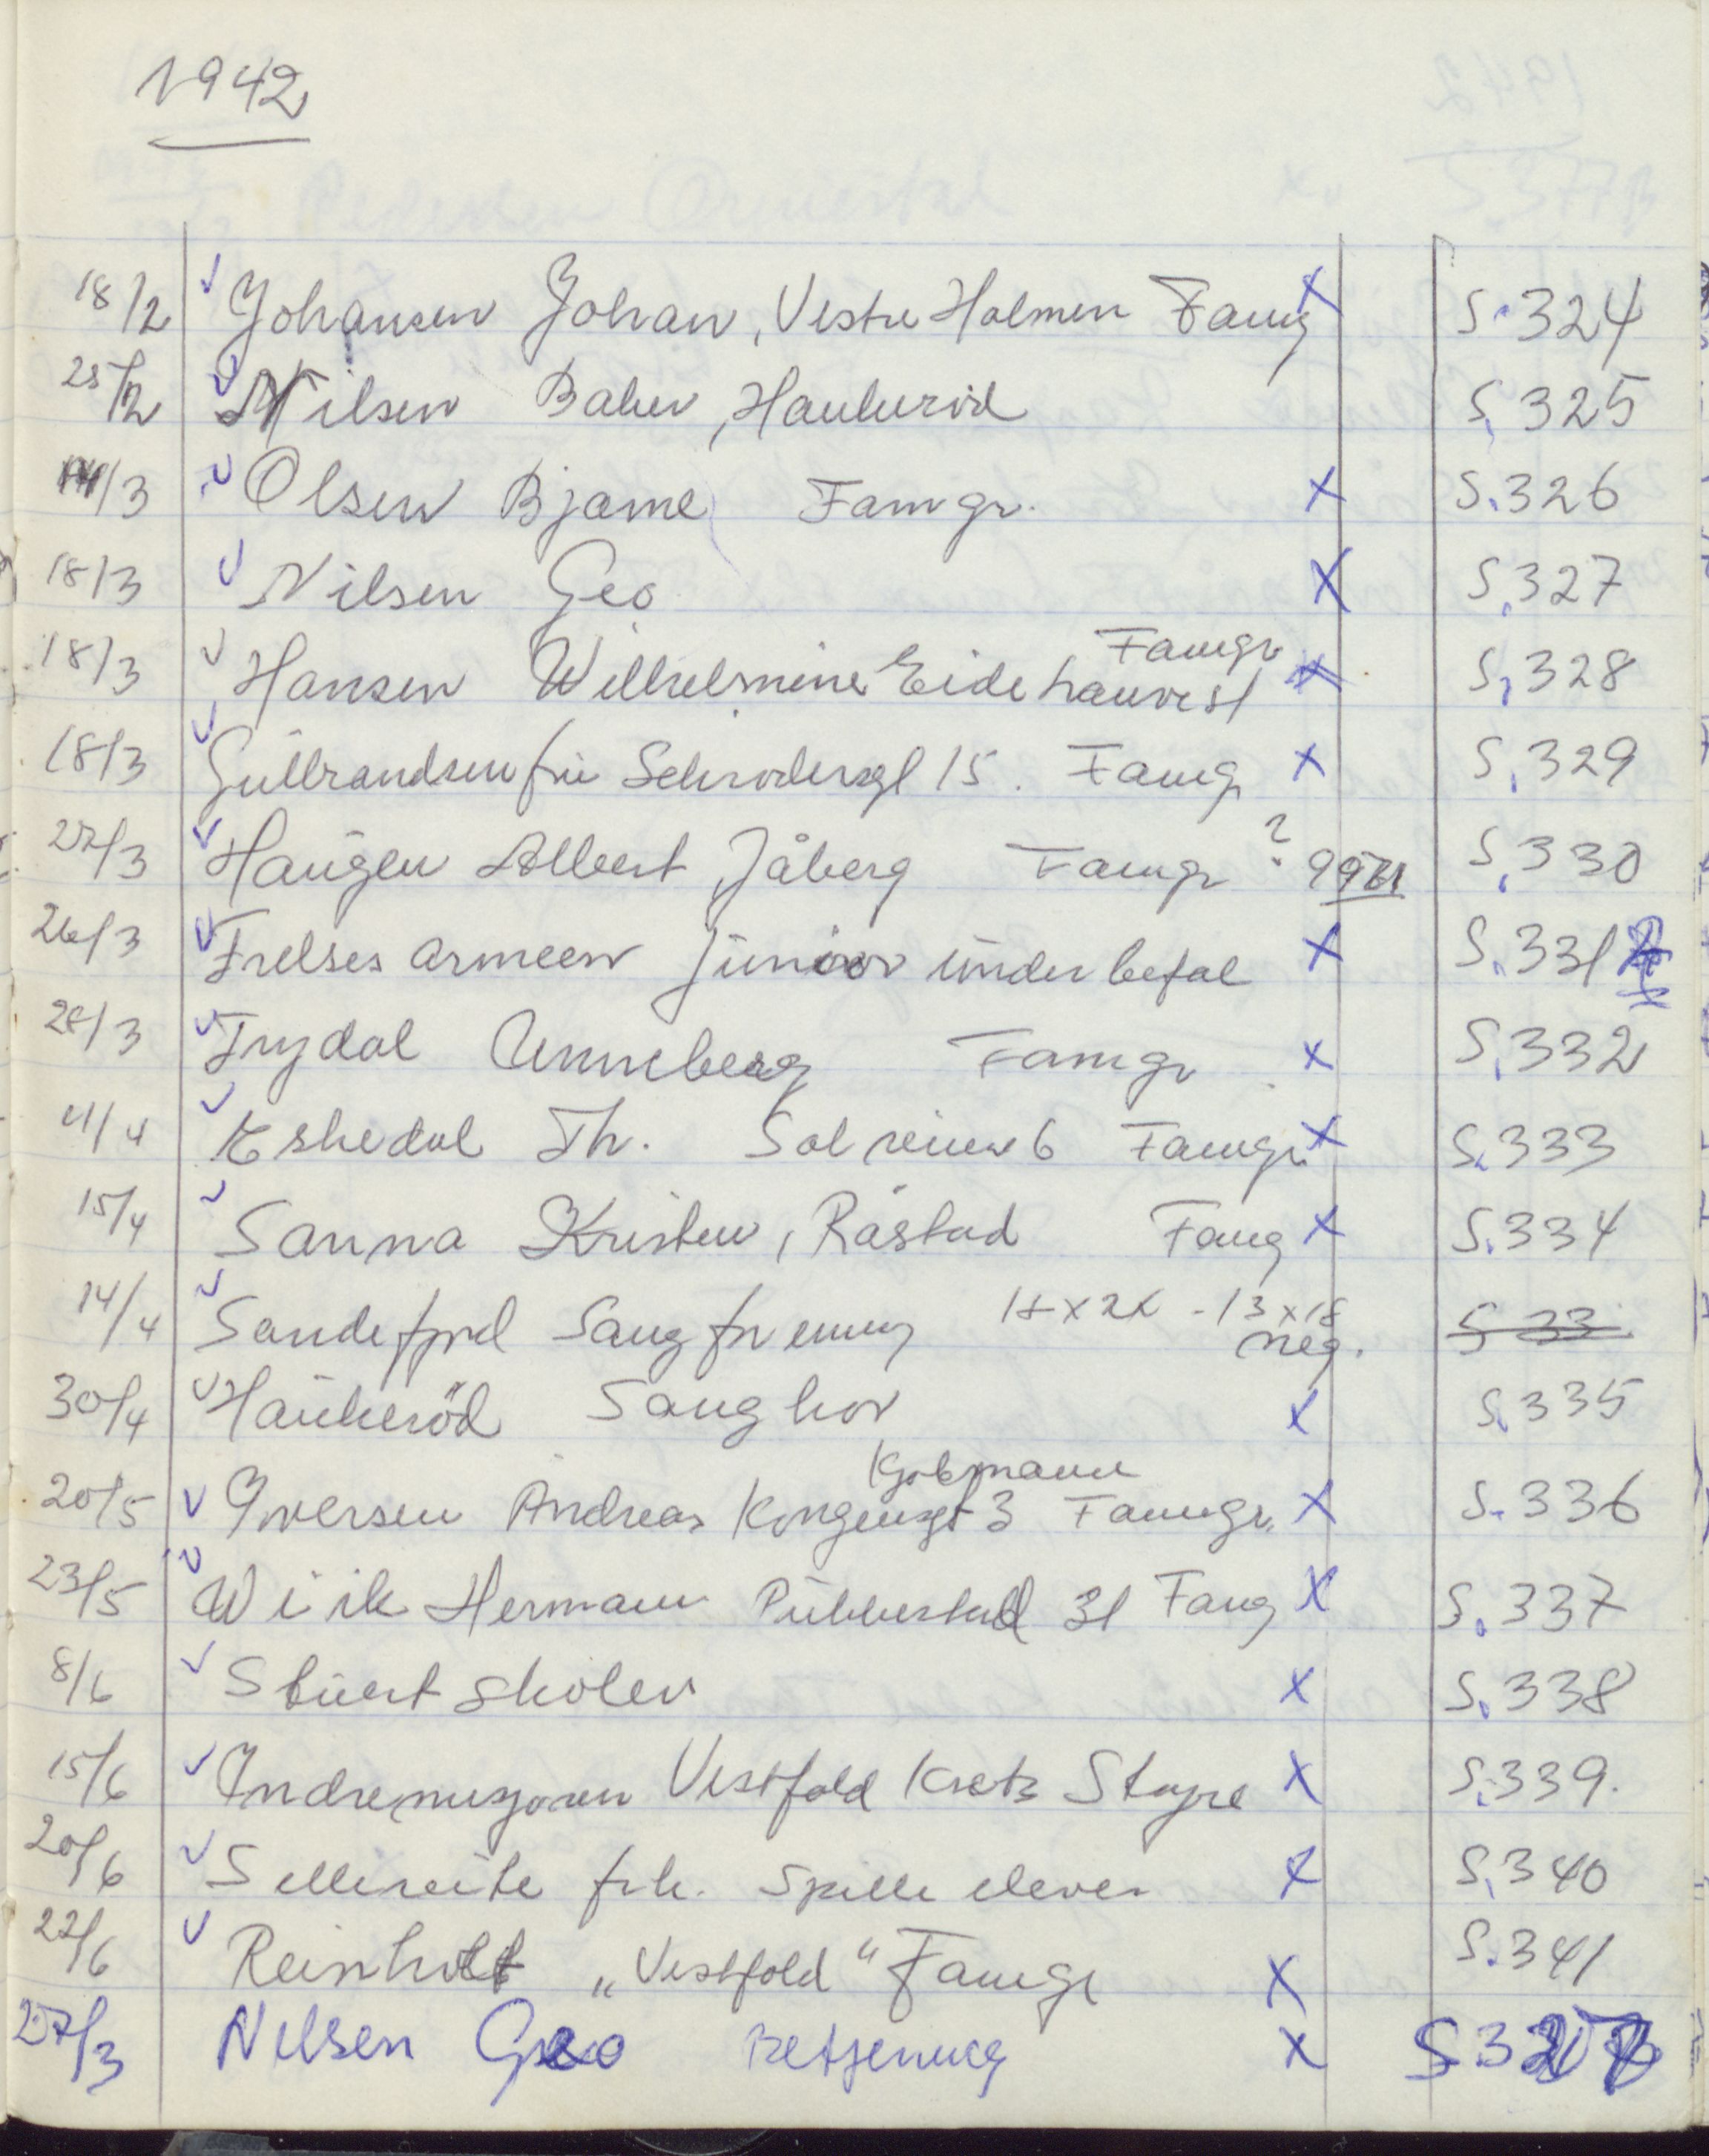 1942
18/2 Johansen Johan, Vestre Holmen Famg X S. 324
25/2 Nilsen Baker, Haukeröd S. 325
14/3 Olsen Bjarne Famgr. X S. 326
18/3 Nilsen Geo X S. 327
Famgr
18/3 Hansen Wilhelmine Eide X S. 328
18/3 Gulbrandsen frü Schrodersgt 15. Famg X S. 329
27/3 Haugen Albert, Jåberg Famgr ? S. 330
26/3 Frelses armeen Junior under befal X S. 331
28/3 Trydal Unneberg Famgr X S. 332
4/4 Eskedal Th. Solveien 6 Famgr X S. 333
15/4 Sanna Kristen, Råstad Famg X S. 334
14/4 Sandefjord Sangforening 18x24 - 13x18
neg. S 33
30/4 Haukeröd Sangkor X S. 335
Kjøbmann
20/5 Iversen Andreas Kongensgt 3 Famgr. X S. 336
23/5 Wiik Hermann Pukkestad 31 Famg X S. 337
8/6 Stuertskolen X S. 338
15/6 Indremisjonen Vestfold Krets Styre X S. 339.
20/6 frk. Spille elever X S. 340
22/6 Reinholt „Vestfold" Famgr X S. 341
27/3 Nilsen Geo Betjening X